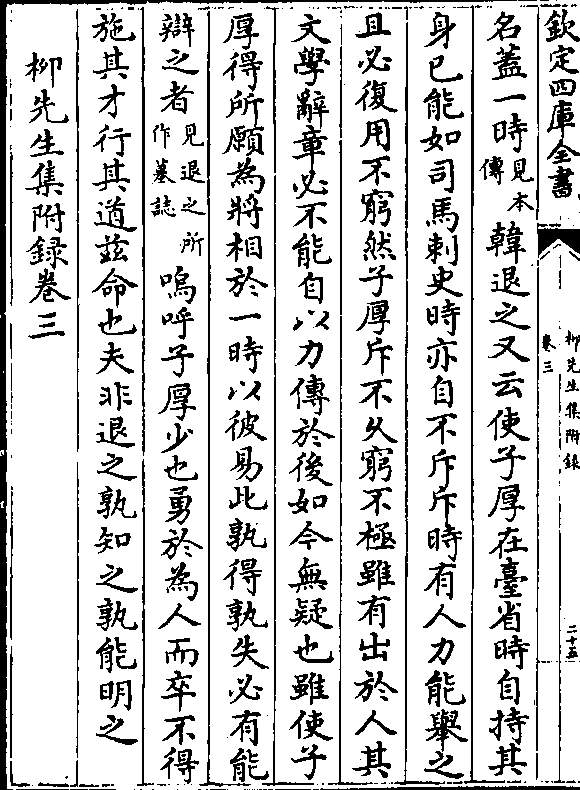 欽定四庫全書
柳先生集附録
卷三
二十五
名蓋一時見本傳韓退之又云使子厚在臺省時自持其
身已能如司馬刺史時亦自不斥斥時有人力能舉之
且必復用不窮然子厚斥不久窮不極雖有出於人其
文學辭章必不能自以力傳於後如今無疑也雖使子
厚得所願為將相於一時以彼易此孰得孰失必有能
辯之者見退之所作墓誌嗚呼子厚少也勇於為人而卒不得
施其才行其道兹命也夫非退之孰知之孰能明之
柳先生集附録卷三